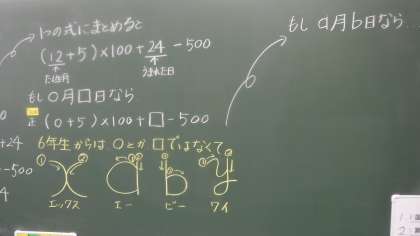 1つの式にまとめると
(12+5)×100+24-500
たん生月
うまれた日
もし○月□日なら
(○+5)×100+□-500
6年生からは○とか□ではなくて
① ② ① ② ① ② ① ②
x a b y
エックス エー ビー ワイ
もしa月b日なら…
+24
-500
4